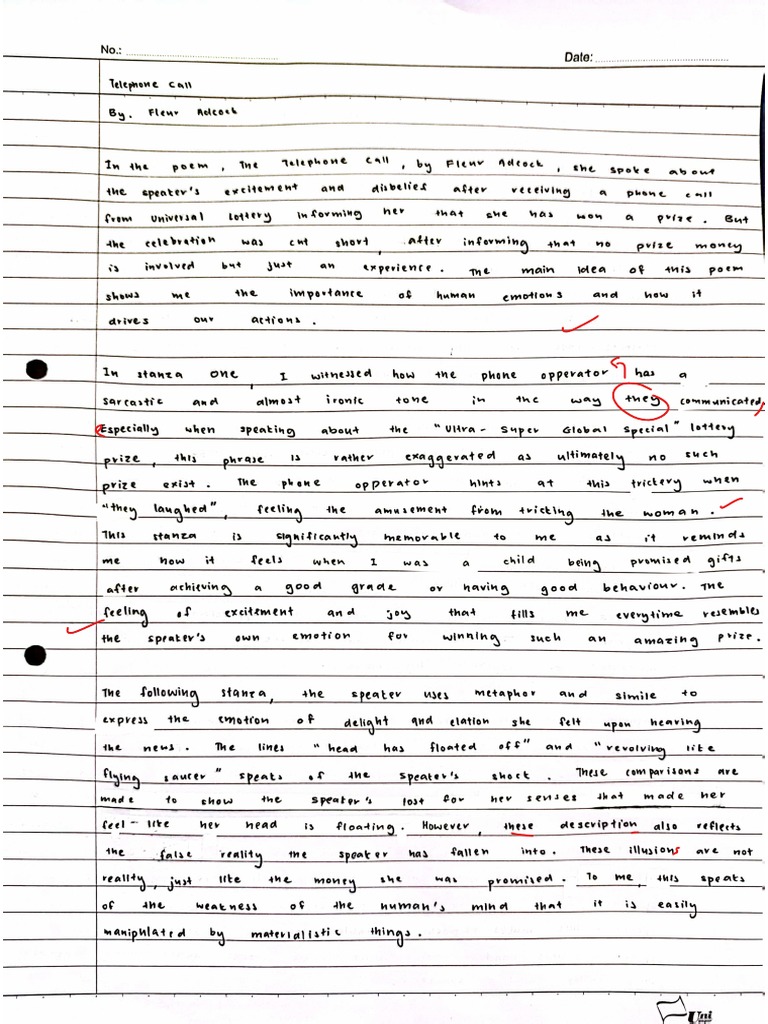 No.:
Date:
Telephone Call
By. Fleur Adcock
In the poem, The Telephone Call, by Fleur Adcock, she spoke about
the speaker's excitement and disbelief after receiving a phone call
from Universal Lottery informing her that she has won a prize. But
the celebration was cut short, after informing that no prize money
is involved but just an experience. The main idea of this poem
shows me the importance of human emotions and how it
drives our actions.
In stanza one, I witnessed how the phone opperator has a
sarcastic and almost ironic tone in the way they communicated,
Especially when speaking about the "Ultra-Super Global Special" lottery
prize, this phrase is rather exaggerated as ultimately no such
prize exist. The phone opperator hints at this trickery when
"they laughed", feeling the amusement from tricking the woman.
This stanza is significantly memorable to me as it reminds
me how it feels when I was a child being promised gifts
after achieving a good grade or having good behaviour. The
feeling of excitement and joy that fills me everytime resembles
the speaker's own emotion for winning such an amazing prize.
The following stanza, the speaker uses metaphor and simile to
express the emotion of delight and elation she felt upon hearing
the news. The lines "head has floated off" and "revolving like
flying saucer" speaks of the speaker's shock. These comparisons are
made to show the speaker's lost for her senses that made her
feel-like her head is floating. However, these description also reflects
the false reality the speaker has fallen into. These illusions are not
reality, just like the money she was promised. To me, this speaks
of the weakness of the human's mind that it is easily
manipulated by materialistic things.
Uni